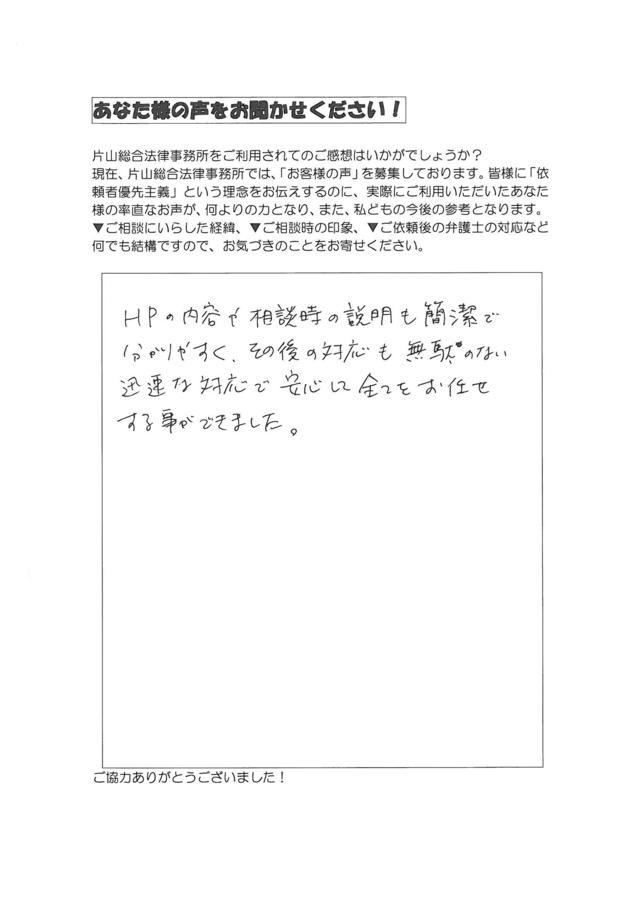 あなた様の声をお聞かせください！
片山総合法律事務所をご利用されてのご感想はいかがでしょうか？
現在、片山総合法律事務所では、「お客様の声」を募集しております。皆様に「依
頼者優先主義」という理念をお伝えするのに、実際にご利用いただいたあなた
様の率直なお声が、何よりの力となり、また、私どもの今後の参考となります。
▼ご相談にいらした経緯、▼ご相談時の印象、▼ご依頼後の弁護士の対応など
何でも結構ですので、お気づきのことをお寄せください。
HPの内容や相談時の説明も簡潔で
分かりやすく、その後の対応も無駄のない
迅速な対応で安心して全てをお任せ
する事ができました。
ご協力ありがとうございました！